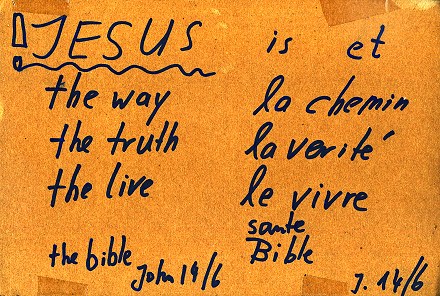 JESUS is et
the way la chemin
the truth la verité
the live le vivre
the bible John 14/6 sante Bible J. 14/6